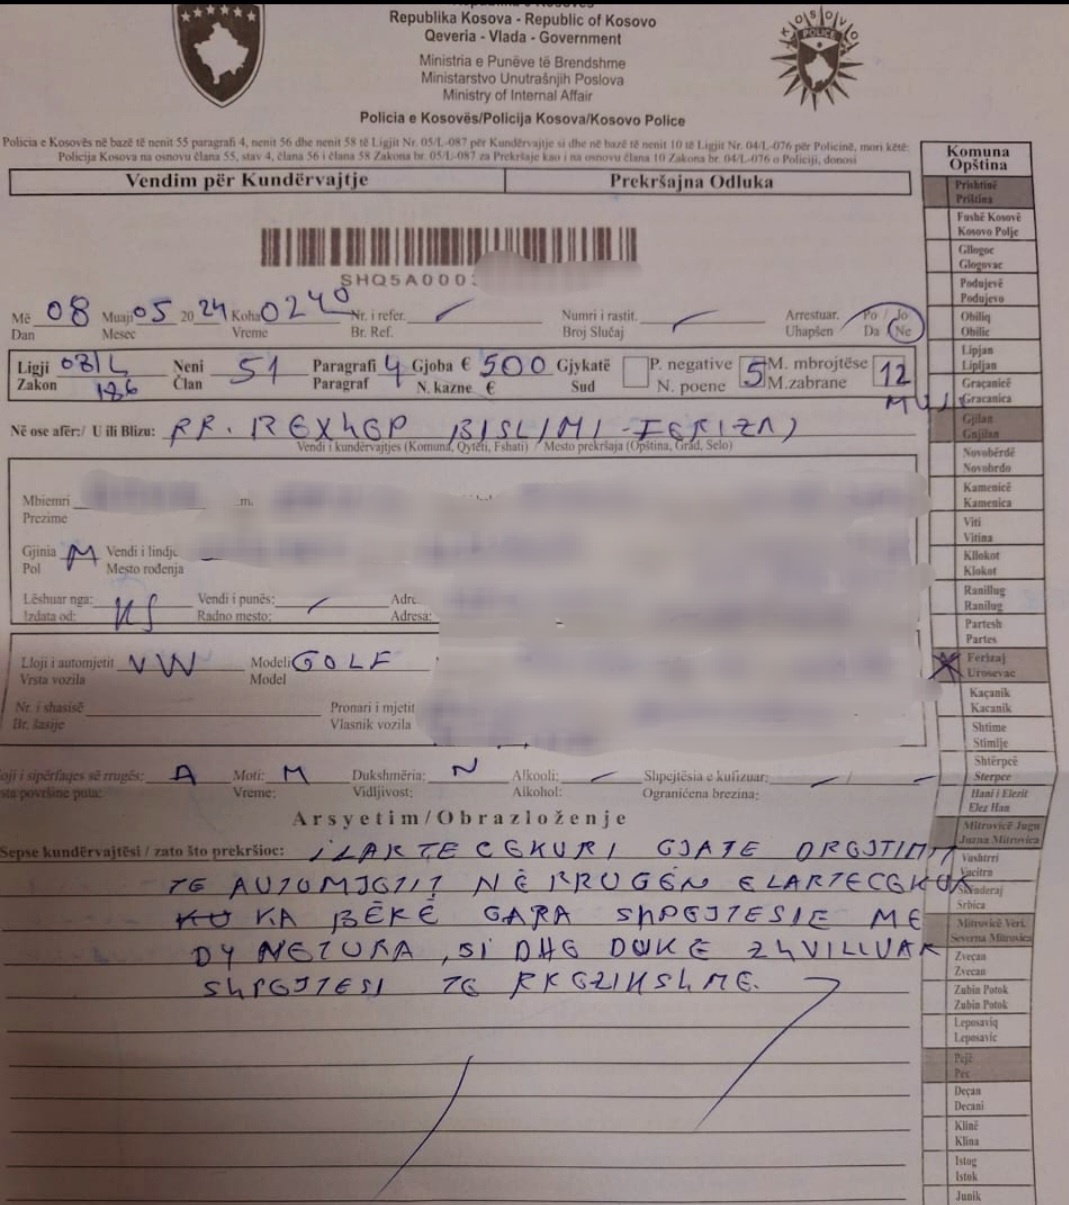 Republika Kosova - Republic of Kosovo
Qeveria - Vlada - Government
Ministria e Punëve të Brendshme
Ministarstvo Unutrašnjih Poslova
Ministry of Internal Affair
Policia e Kosovës/Policija Kosova/Kosovo Police
Policia e Kosovës në bazë të nenit 55 paragrafi 4, nenit 56 dhe nenit 58 të Ligjit Nr. 05/L-087 për Kundërvajtje si dhe në bazë të nenit 10 të Ligjit Nr. 04/L-076 për Policinë, mori këtë:
Policija Kosova na osnovu člana 55, stav 4, člana 56 i člana 58 Zakona br. 05/L-087 za Prekršaje kao i na osnovu člana 10 Zakona br. 04/L-076 o Policiji, donosi
Vendim për Kundërvajtje Prekršajna Odluka
SHQ5A000
Më 08 Muaji 05 2024 Koha 0240 Nr. i refer. Numri i rastit. Arrestuar. Po / Jo
Dan Mesec Vreme Br. Ref. Broj Slućaj Uhapšen Da / Ne
Ligji 08/L Neni 51 Paragrafi 4 Gjoba € 500 Gjykatë P. negative 5 M. mbrojtëse 12
Zakon 186 Član Paragraf N. kazne € Sud N. poene M.zabrane MUJ
Në ose afër:/ U ili Blizu: RR. REXHEP BISLIMI - FERIZAJ
Vendi i kundërvajtjes (Komuna, Qyteti, Fshati) / Mesto prekršaja (Opština, Grad, Selo)
Mbiemri m.
Prezime
Gjinia M Vendi i lindje
Pol Mesto rođenja
Lëshuar nga: KS Vendi i punës: Adre
Izdata od: Radno mesto: Adresa:
Lloji i automjetit VW Modeli GOLF
Vrsta vozila Model
Nr. i shasisë Pronari i mjetit
Br. šasije Vlasnik vozila
loji i sipërfaqes së rrugës: A Moti: M Dukshmëria: N Alkooli: Shpejtësia e kufizuar: /
sta površine puta: Vreme: Vidljivost: Alkohol: Ograničena brezina:
Arsyetim/Obrazloženje
Sepse kundërvajtësi / zato što prekršioc: I LARTECEKURI GJATE DREJTIMIT
TE AUTOMJETIT NË RRUGËN E LARTECEKUR
KU KA BËRË GARA SHPEJTESIE ME
DY VETURA, SI DHE DUKE ZHVILLUAR
SHPEJTESI TE RREZIKSHME.
Komuna
Opština
Prishtinë
Priština
Fushë Kosovë
Kosovo Polje
Gllogoc
Glogovac
Podujevë
Podujevo
Obiliq
Obilic
Lipjan
Lipljan
Graçanicë
Gracanica
Gjilan
Gnjilan
Novobërdë
Novobrdo
Kamenicë
Kamenica
Viti
Vitina
Kllokot
Klokot
Ranillug
Ranilug
Partesh
Partes
Ferizaj
Urosevac
Kaçanik
Kacanik
Shtime
Stimlje
Shtërpcë
Sterpce
Hani i Elezit
Elez Han
Mitrovicë Jugu
Juzna Mitrovica
Vushtrri
Vucitra
Skënderaj
Srbica
Mitrovicë Veri.
Severna Mitrovica
Zveçan
Zvecan
Zubin Potok
Zubin Potok
Leposaviq
Leposavic
Pejë
Pec
Deçan
Decani
Klinë
Klina
Istog
Istok
Junik